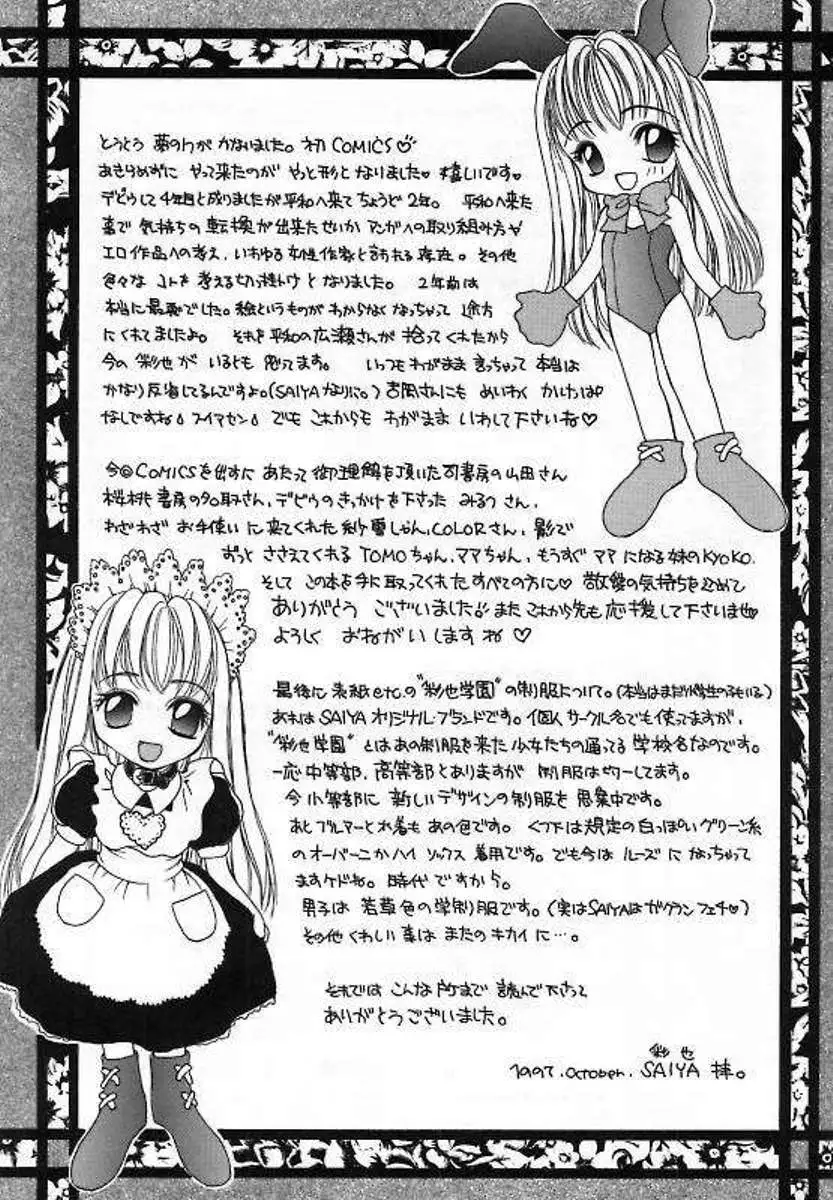 とうとう 夢の1つが かないました。初COMICS♡
あきらめずに やって来たのが やっと形と なりました♥ 嬉しいです♥
デビウして4年目と成りましたが平和へ来て ちょうど2年。 平和へ来た
事で 気持ちの 転換が出来たせいか マンガへの取り組み方や
エロ作品への考え、いわゆる女性作家と言われる存在。その他
色々な コトを 考える切っ掛けと なりました。 2年前は
本当に最悪でした。絵というものが わからなく なっちゃって 途方
にくれてましたよ。 それを平和の広瀬さんが 拾ってくれたから
今の 彩也が いるとも 思ってます。 いっつもわがまま 言っちゃって 本当は
かなり反省してるんですよ。(SAIYAなりに。)吉岡さんにも めいわく かけっぱ
なしですね スイマセン でも これからも わがまま いわして下さいね♡
今回COMICSを出すに あたって 御理解を頂いた司書房の山田さん
桜桃書房の名取さん、デビウのきっかけを下さった みるつ さん、
わざわざ お手伝い に来てくれた 紗夏しゃん、COLORさん、影で
ずっと ささえてくれる TOMOちゃん、ママちゃん、もうすぐ ママ になる妹のKYOKO、
そして この本を手に取ってくれた すべての方に♡ 敬愛の気持ちを込めて
ありがとう ございました また これから先も 応援して下さいませ♡
よろしく おねがい します ね ♡
最後に 表紙etc.の"彩也学園"の制服について。
あれは SAIYA オリジナル ブランドです。個人サークル名でも使ってますが、
"彩也学園" とは あの制服を来た 少女たちの通ってる 学校名なのです。
一応中等部、高等部とありますが 制服は統一してます。
今 小等部に 新しいデザインの制服を 思案中です。
あと ブルマーと水着も あの色です。 くつ下は規定の白っぽいグリーン系
の オーバーニーか ハイ ソックス 着用です。でも今は ルーズ に なっちゃって
ますケドね。 時代 ですから。
男子は 若草色の学制服です。(実はSAIYAはガクラン フェチ♡)
その他 くわしい 事は またの キカイ に…。
それでは こんな 所まで 読んで下さって
ありがとうございました。
彩也
1997. October. SAIYA 拝。